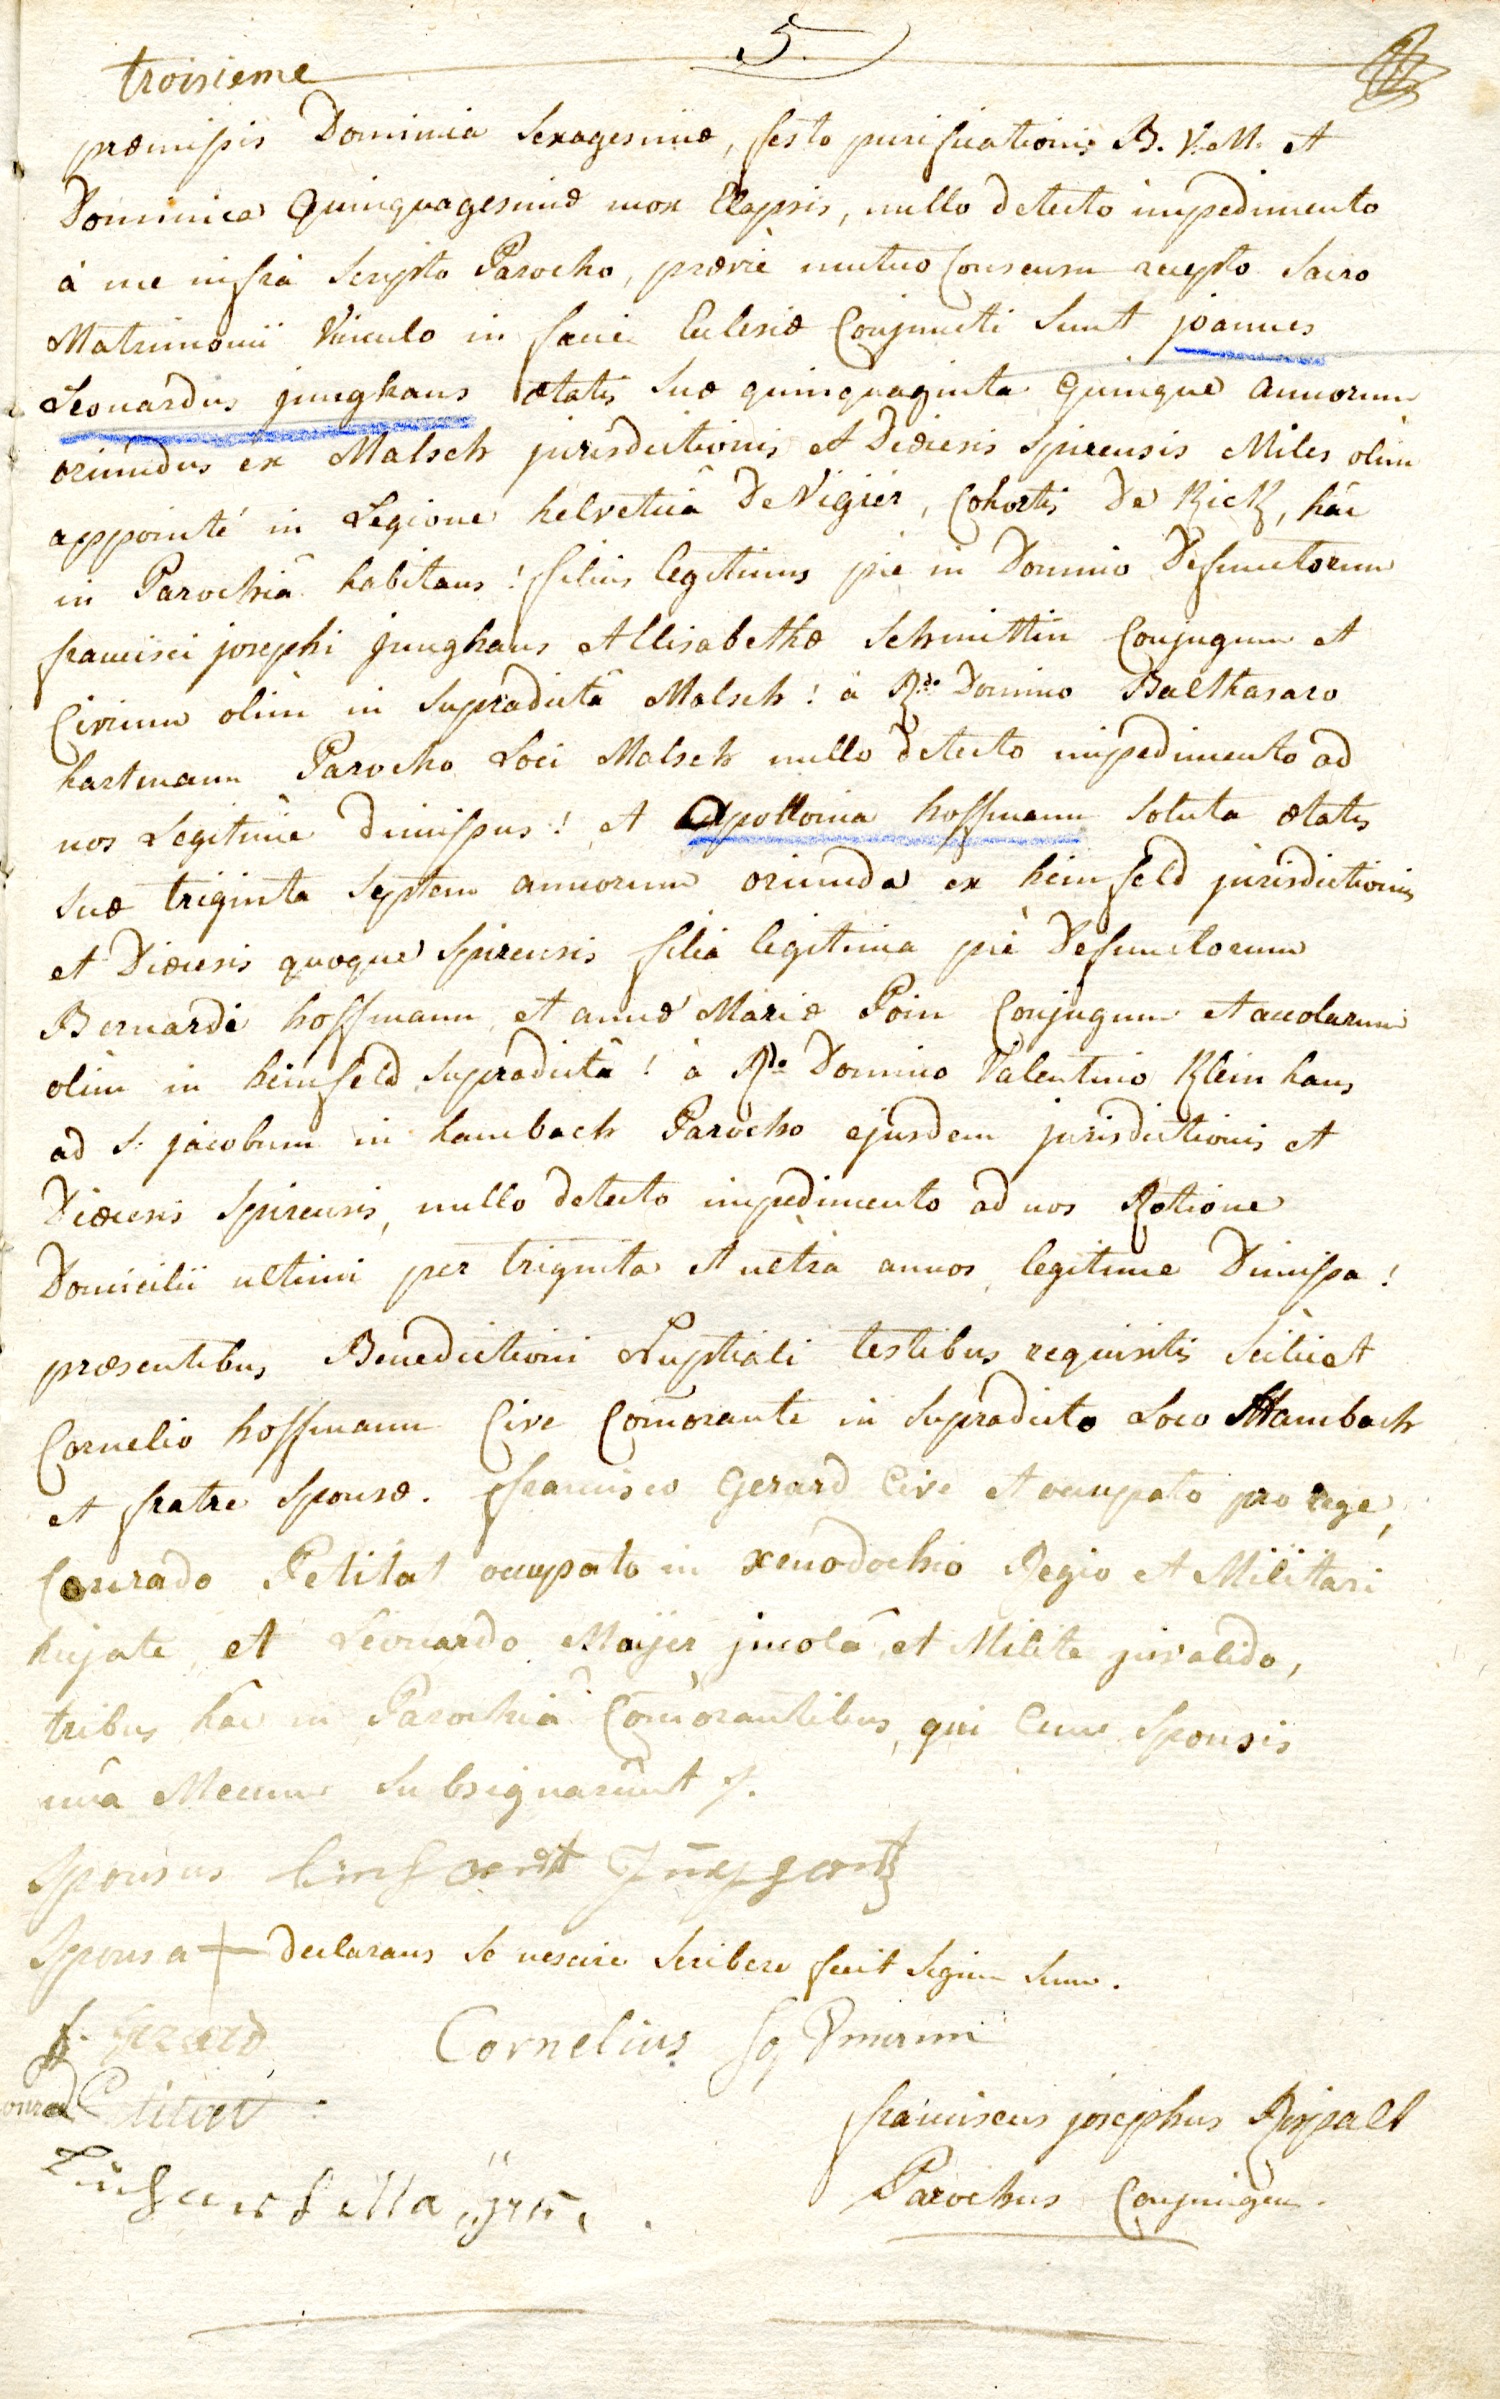 5.
troisieme
præmissis Dominica Sexagesimæ, festo purificationis B. V. M. et
Dominica Quinquagesimæ mox Elapsis, nullo detecto impedimento
à me infrà scripto Parocho, præviè mutuo Consensu recepto sacro
Matrimonii Vinculo in facie Eclesiæ Conjuncti sunt joannes
Leonardus junghans ætatis suæ quinquaginta quinque annorum
oriundus ex Malsch jurisdictionis et Diœcesis Spirensis Miles olim
appointé in Legione helveticâ De Vigier, Cohortis De Rick, hâc
in Parochiâ habitans! filius legitimus piè in Domino Defunctorum
francisci josephi junghans et Elisabethæ Schmittin Conjugum et
Civium olim in supradictâ Malsch! à R.do Domino Balthasaro
hartmann Parocho Loci Malsch nullo detecto impedimento ad
nos Legitimè dimissus! et Apollonia hoffmann soluta ætatis
suæ triginta septem annorum oriunda ex heimfeld jurisdictionis
et Diœcesis quoque Spirensis filia legitima piè Defunctorum
Bernardi hoffmann et annæ Mariæ Poin Conjugum et accolarum
olim in heimfeld supradictâ! à R.do Domino Valentino Kleinhans
ad S. jacobum in hambach Parocho ejusdem jurisdictionis et
Diœcesis Spirensis, nullo detecto impedimento ad nos Ratione
Domicilii ultimi per triginta et ultra annos legitime Dimissa!
præsentibus Benedictioni Nuptiali testibus requisitis scilicet
Cornelio hoffmann Cive Com̃orante in supradicto Loco Hambach
et fratre sponsæ. francisco Gerard Cive et occupato pro rege,
Conrado Petitat occupato in xenodochio Regio et Militari
hujate et Leonardo Mayer jncolâ et Milite jnvalido,
tribus hâc in Parochiâ Com̃orantibus, qui Cum sponsis
unà Mecum subsignarunt
Sponsus
Sponsa + declarans se nescire scribere fecit signum suum.
f. gerard Cornelius Hoffmann
Conrad Petitat
franciscus josephus Rispalt
Parochus Conjungens.